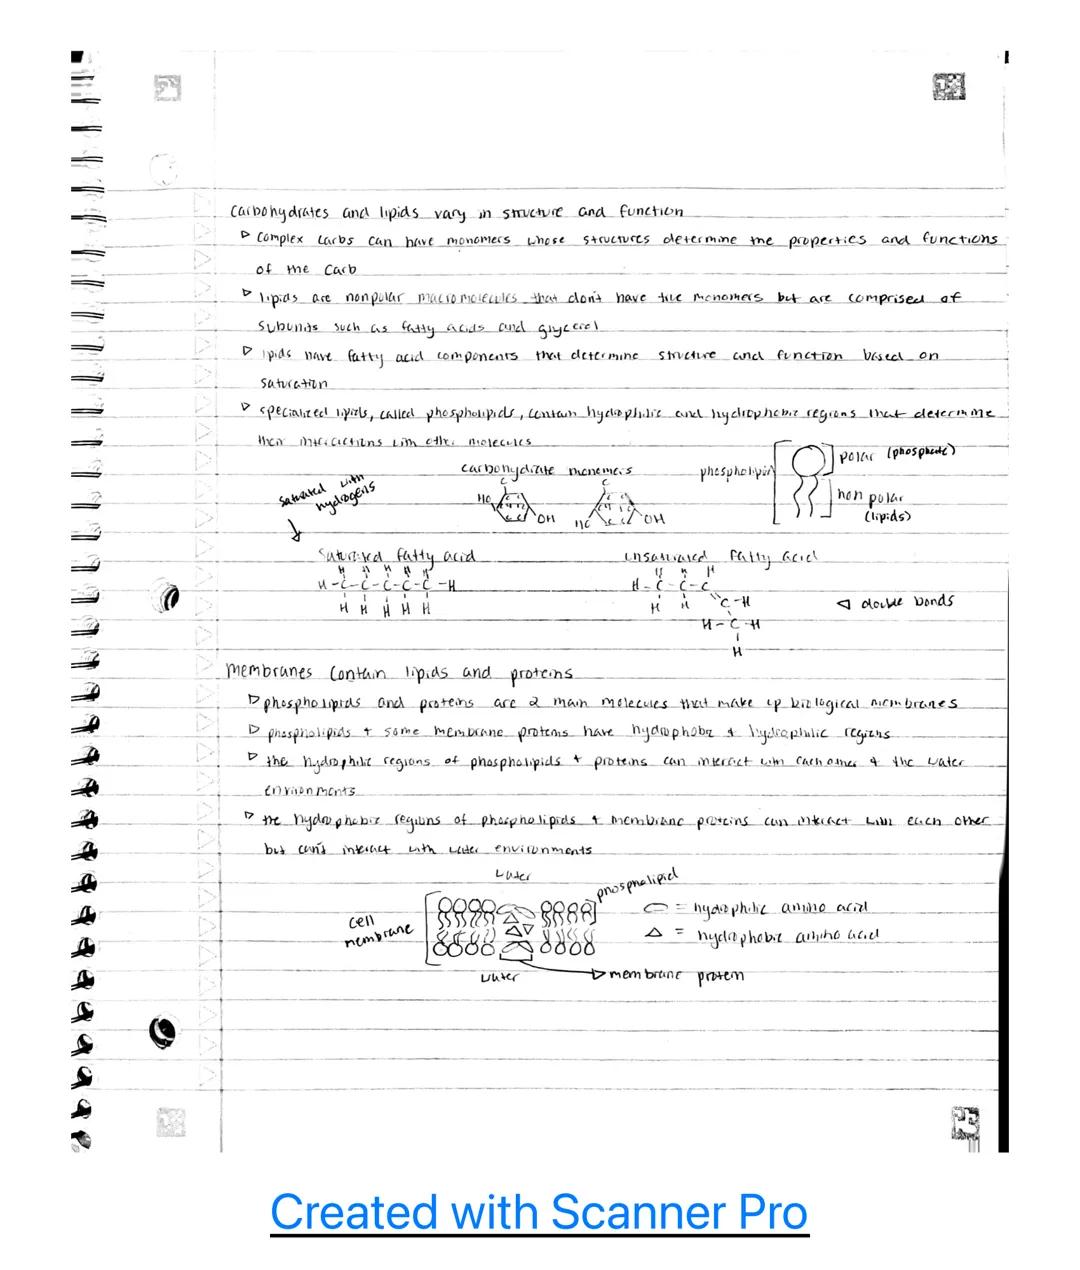 Carbohydrates and lipids vary in structure and function
▷ complex carbs can have monomers whose structures determine the properties and functions
of the carb
▷ lipids are nonpolar macromolecules that don't have true monomers but are comprised of
subunits such as fatty acids and glycerol
▷ lipids have fatty acid components that determine structure and function based on
saturation
▷ specialized lipids, called phospholipids, contain hydrophilic and hydrophobic regions that determine
their interactions with other molecules
carbohydrate monomers
phospholipid
polar (phosphate)
non polar
(lipids)
saturated with
hydrogens
C
HO
OH
C
HO
OH
Saturated fatty acid
H H H H H
H-C-C-C-C-C-H
H H H H H
unsaturated fatty acid
H H H
H-C-C-C
H H
C-H
H-C-H
H
◁ double bonds
Membranes contain lipids and proteins
▷ phospholipids and proteins are 2 main molecules that make up biological membranes
▷ phospholipids + some membrane proteins have hydrophobic + hydrophilic regions
▷ the hydrophilic regions of phospholipids + proteins can interact with each other + the water
environments
▷ the hydrophobic regions of phospholipids + membrane proteins can interact with each other
but can't interact with water environments
water
phospholipid
cell
membrane
= hydrophilic amino acid
△ = hydrophobic amino acid
water
membrane protein
Created with Scanner Pro